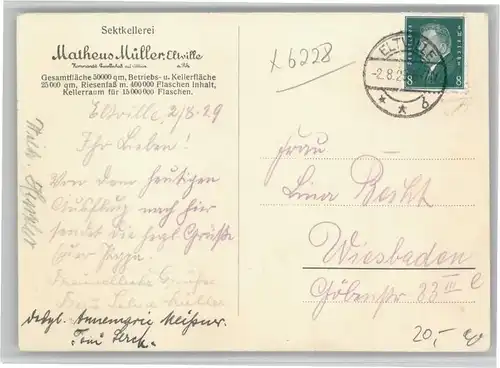 Sektkellerei
Matheus Müller, Eltville
Kommandit Gesellschaft auf Aktien a. Rh.
Gesamtfläche 50000 qm, Betriebs- u. Kellerfläche
25000 qm, Riesenfaß m. 400000 Flaschen Inhalt,
Kellerraum für 15000000 Flaschen.
Eltville, 2/8-29
Ihr Lieben!
Von dem heutigen
Ausflug nach hier
sendet die herzl. Grüße
Euer Pappa.
desgl. Annemarie Meißner.
Toni
x6228
ELTVILLE
-2.8.29
8 8
Frau
Lina Becht
Wiesbaden
Göbenstr 33 III l
20,-